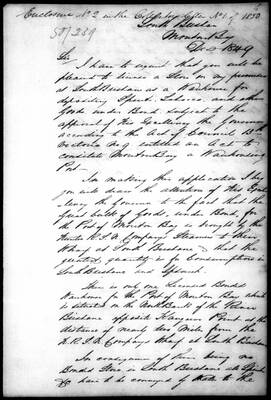 Enclosure No 2 in the Collector's letter No 1 of 1850
50/239
South Brisbane
Moreton Bay
Dec 1849
Sir
I have to request that you will be
pleased to license a Store on my premises
at South Brisbane as a Warehouse for
depositing Spirits, Tobacco, and other
Goods under Bond, subject to the
approval of His Excellency the Governor
according to the Act of Council 13th
Victoria No 9 entitled an Act to
constitute Moreton Bay a Warehousing
Port—
In making this application I beg
you will draw the attention of His Excel-
lency the Governor to the fact that the
great bulk of Goods, under Bond, for
the Port of Moreton Bay is brought by the
Hunter R. S. N. Company's Steamer to their
Wharf at South Brisbane & that the
greatest quantity is for Consumption in
South Brisbane and Ipswich.
There is only one Licensed Bonded
Warehouse in the Port of Moreton Bay which
is situated on the North Bank of the River
Brisbane opposite Kangaroo Point at the
distance of nearly two Miles from the
H. R. S. N. Company's Wharf at South Brisbane
In consequence of there being no
Bonded Store in South Brisbane all Spirits
&c have to be conveyed at to the